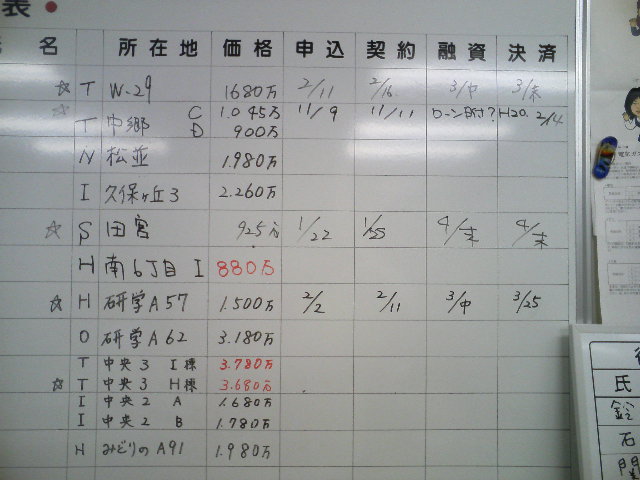 表
名 所在地 価格 申込 契約 融資 決済
☆ T W-29 1680万 2/11 2/16 3/中 3/末
☆ C 1.045万 11/9 11/11 ローン H20. 2/4
T 中郷 D 900万
N 松並 1.980万
I 久保ヶ丘3 2.260万
☆ S 田宮 925万 1/22 1/25 4/末 4/末
H 南6丁目 I 880万
☆ H 研学A57 1.500万 2/2 2/11 3/中 3/25
O 研学A62 3.180万
T 中央3 I棟 3.780万
☆ T 中央3 H棟 3.680万
I 中央2 A 1.680万
I 中央2 B 1.780万
H みどりのA91 1.980万
氏
鈴
石
関